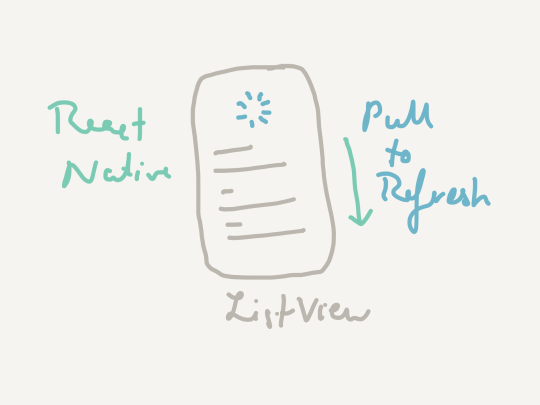 React
Native
Pull
to
Refresh
ListView